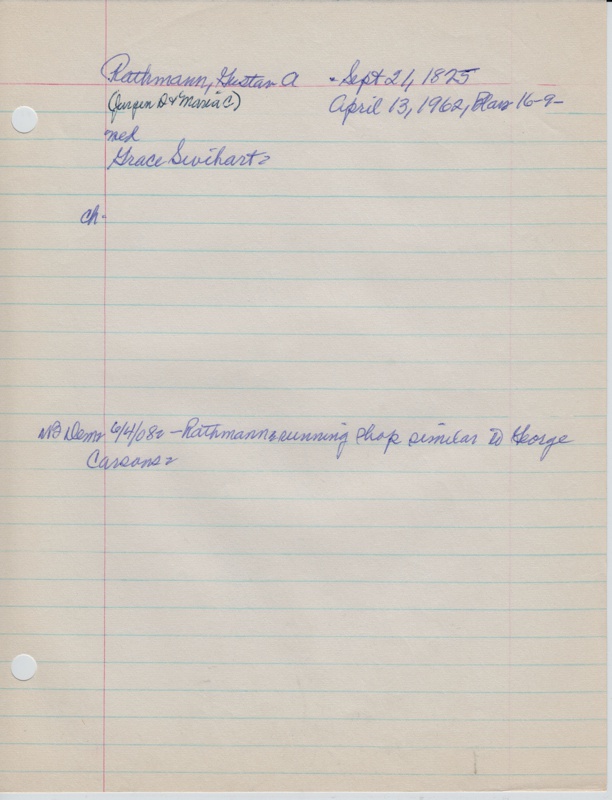 Rathmann, Gustav A - Sept 21, 1825
(Jurgen D & Maria C) April 13, 1962, Blair 16-9-
med
Grace Swihart-
ch-
NB Demo 6/4/08- - Rathmann running shop similar to George
Carsons-